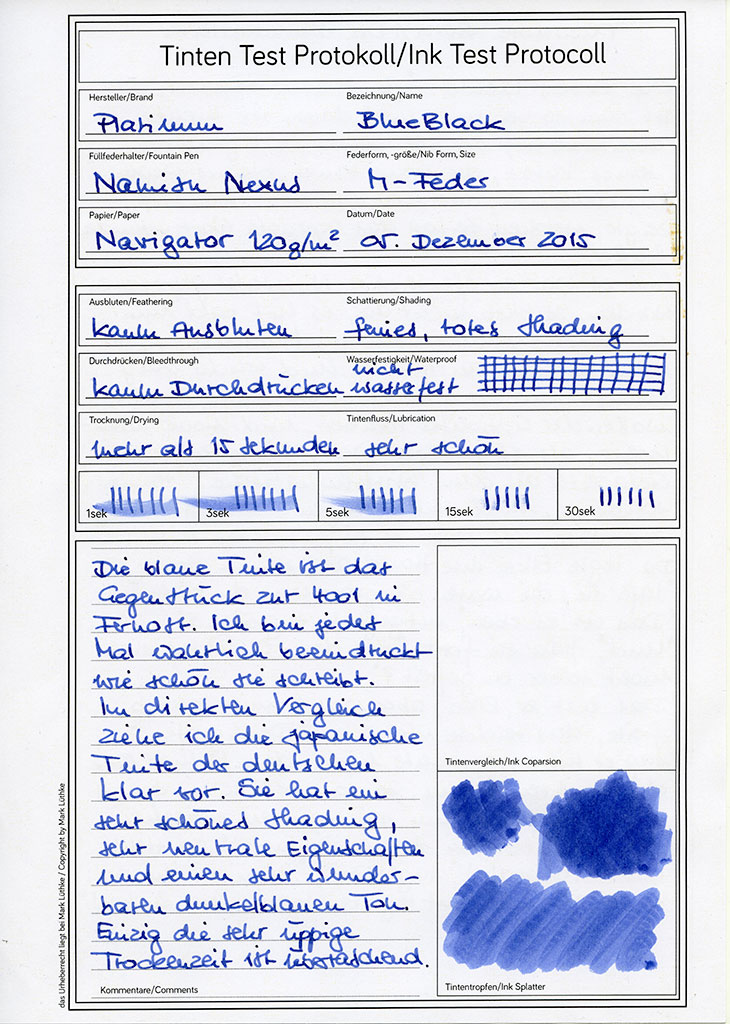 Tinten Test Protokoll/Ink Test Protocoll
Hersteller/Brand
Platinum
Bezeichnung/Name
BlueBlack
Füllfederhalter/Fountain Pen
Namisu Nexus
Federform, -größe/Nib Form, Size
M-Feder
Papier/Paper
Navigator 120g/m²
Datum/Date
05. Dezember 2015
Ausbluten/Feathering
kaum Ausbluten
Schattierung/Shading
feines, rotes Shading
Durchdrücken/Bleedthrough
kaum Durchdrücken
Wasserfestigkeit/Waterproof
nicht
wasserfest
Trocknung/Drying
mehr als 15 sekunden
Tintenfluss/Lubrication
sehr schön
1sek
3sek
5sek
15sek
30sek
Die blaue Tinte ist das
Gegenstück zur 4001 in
Fernost. Ich bin jedes
Mal wahrlich beeindruckt
wie schön sie schreibt.
Im direkten Vergleich
ziehe ich die japanische
Tinte der deutschen
klar vor. Sie hat ein
sehr schönes Shading,
sehr neutrale Eigenschaften
und einen sehr wunder-
baren dunkelblauen Ton.
Einzig die sehr üppige
Trockenzeit ist überraschend.
Kommentare/Comments
Tintenvergleich/Ink Coparsion
Tintentropfen/Ink Splatter
das Urheberrecht liegt bei Mark Lüthke / Copyright by Mark Lüthke